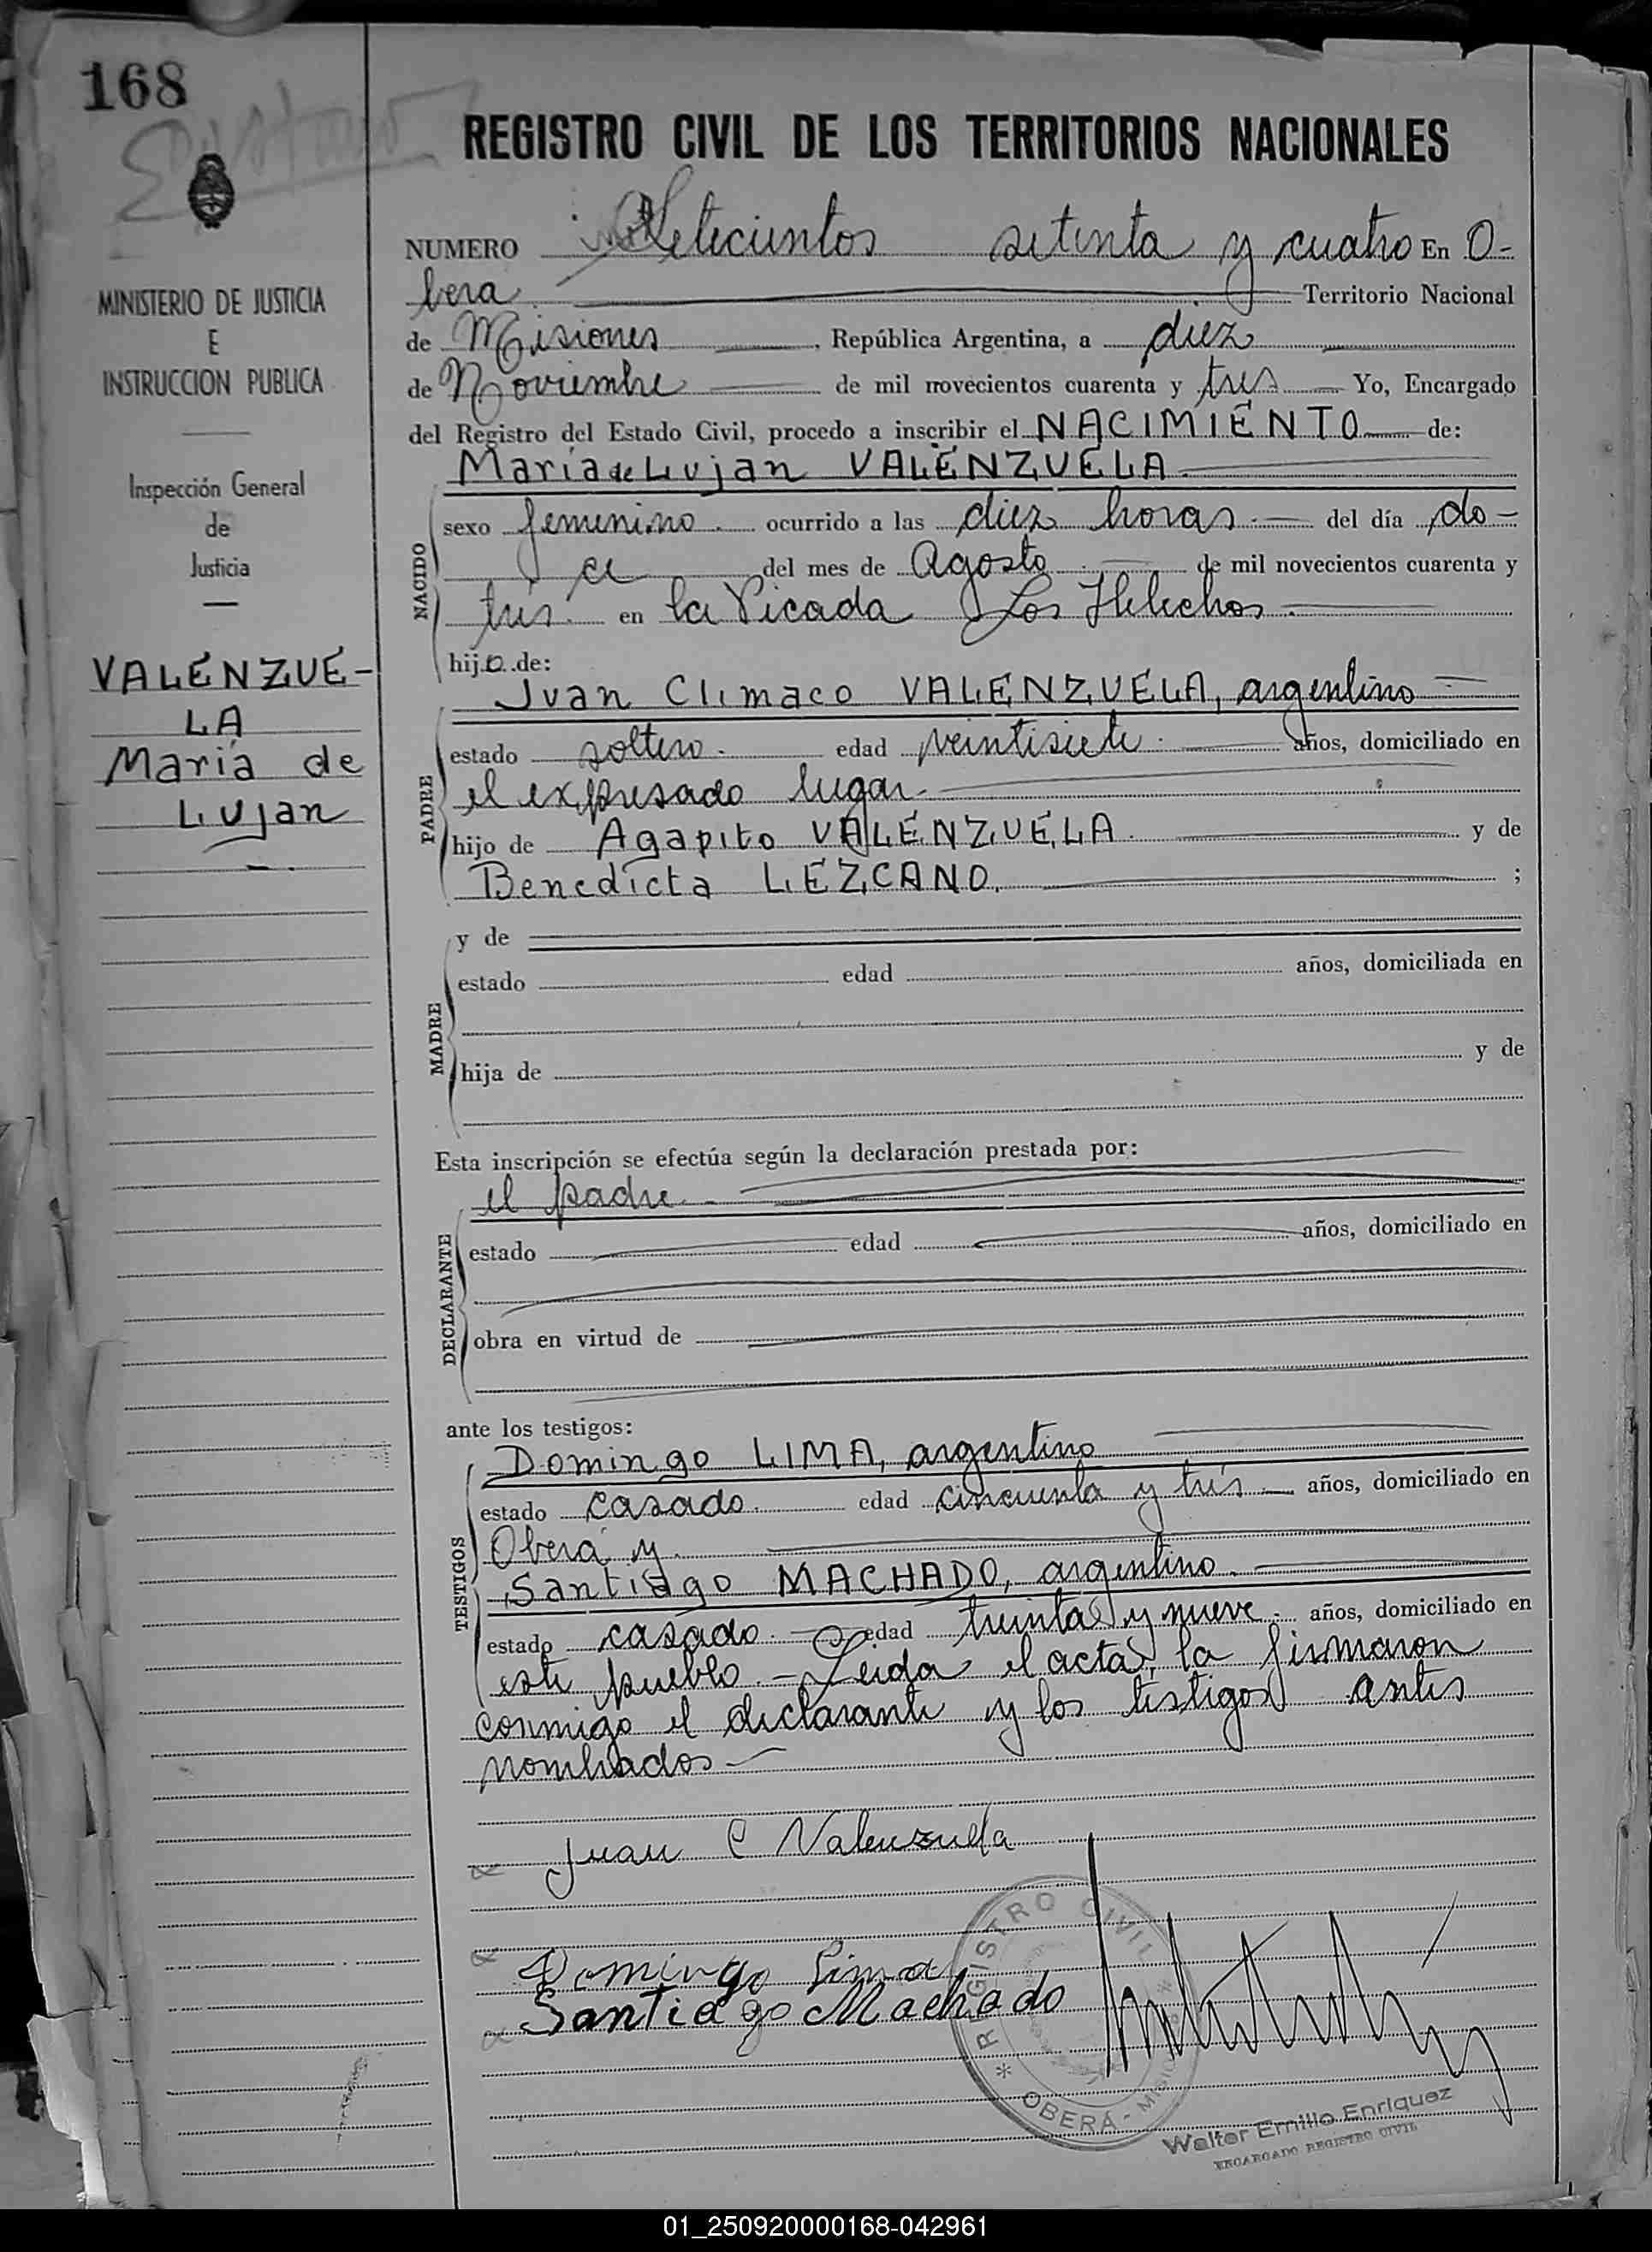 168
REGISTRO CIVIL DE LOS TERRITORIOS NACIONALES
NUMERO Setecientos setenta y cuatro En O-
bera Territorio Nacional
de Misiones, República Argentina, a diez
de Noviembre de mil novecientos cuarenta y tres Yo, Encargado
del Registro del Estado Civil, procedo a inscribir el NACIMIENTO de:
María de Lujan VALENZUELA
NACIDO
sexo femenino. ocurrido a las diez horas. del día do-
ce del mes de Agosto de mil novecientos cuarenta y
tres en la Picada Los Helechos.
hijo de:
MINISTERIO DE JUSTICIA
E
INSTRUCCION PUBLICA
Inspección General
de
Justicia
VALENZUE-
LA
María de
Lujan
PADRE
Juan Climaco VALENZUELA, argentino
estado soltero. edad veintisiete. años, domiciliado en
el expresado lugar.
hijo de Agapito VALENZUELA. y de
Benedicta LEZCANO. ;
MADRE
y de
estado edad años, domiciliada en
hija de y de
Esta inscripción se efectúa según la declaración prestada por:
el padre
DECLARANTE
estado edad años, domiciliado en
obra en virtud de
ante los testigos:
TESTIGOS
Domingo LIMA, argentino
estado casado. edad cincuenta y tres años, domiciliado en
Oberá y
Santiago MACHADO, argentino.
estado casado. edad treinta y nueve. años, domiciliado en
este pueblo. Leida el acta, la firmaron
conmigo el declarante y los testigos antes
nombrados
Juan C Valenzuela
Domingo Lima
Santiago Machado
REGISTRO CIVIL
* OBERÁ - MISIONES *
Walter Emilio Enriquez
ENCARGADO REGISTRO CIVIL
01_250920000168-042961